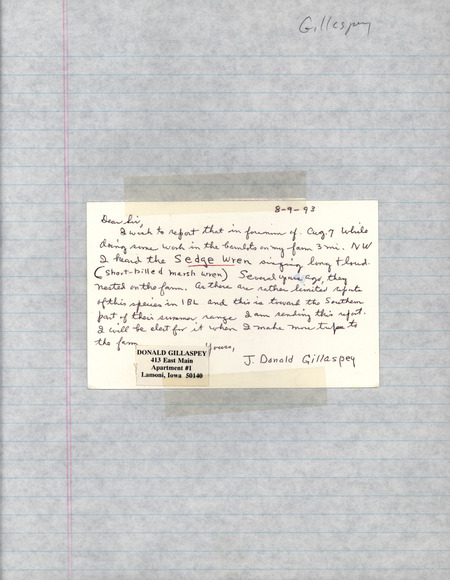 Gillaspey
8-9-93
Dear Sir,
I wish to report that in forenoon of Aug. 7 while
doing some work in the beanlots on my farm 3 mi. NW
I heard the Sedge Wren singing long & loud.
(short-billed marsh wren) Several years ago, they
nested on the farm. As there are rather limited reports
of this species in IBL and this is toward the Southern
part of their summer range I am sending this report.
I will be alert for it when I make more trips to
the farm
Yours,
J. Donald Gillaspey
DONALD GILLASPEY
413 East Main
Apartment #1
Lamoni, Iowa 50140